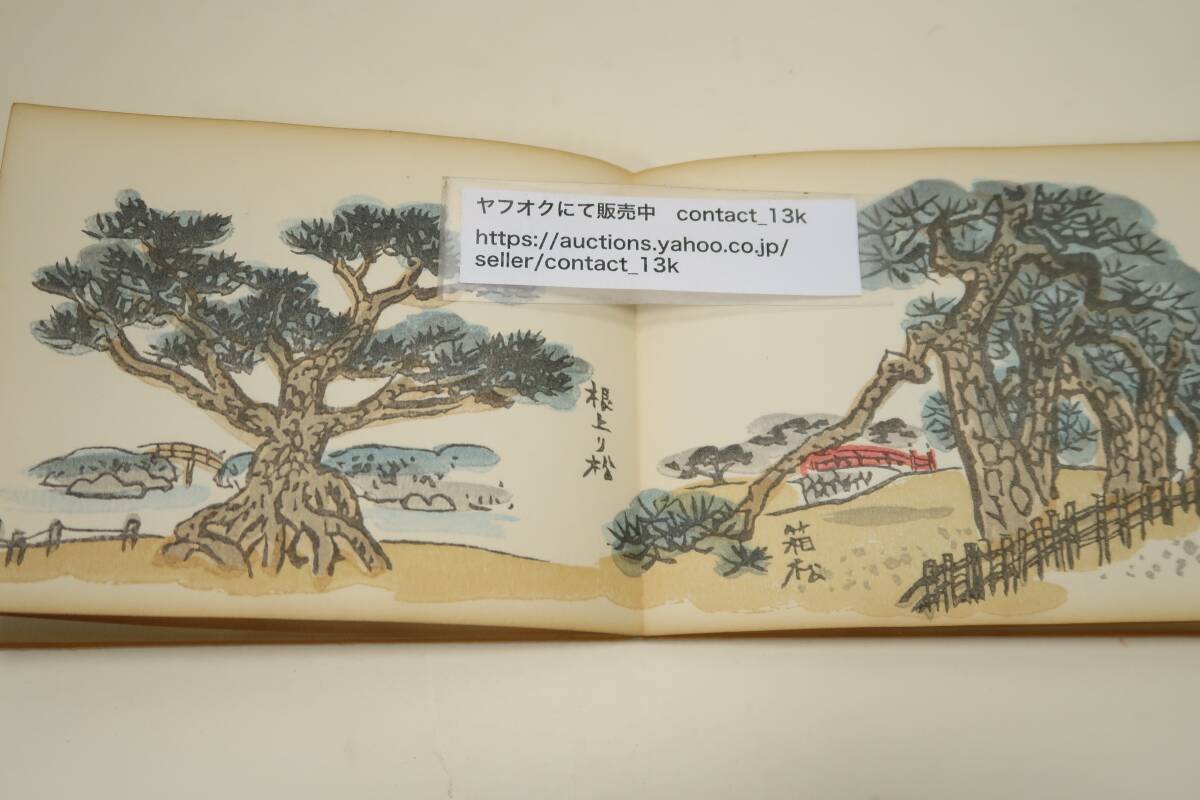 ヤフオクにて販売中　contact_13k
https://auctions.yahoo.co.jp/
seller/contact_13k
根上り松
箱松